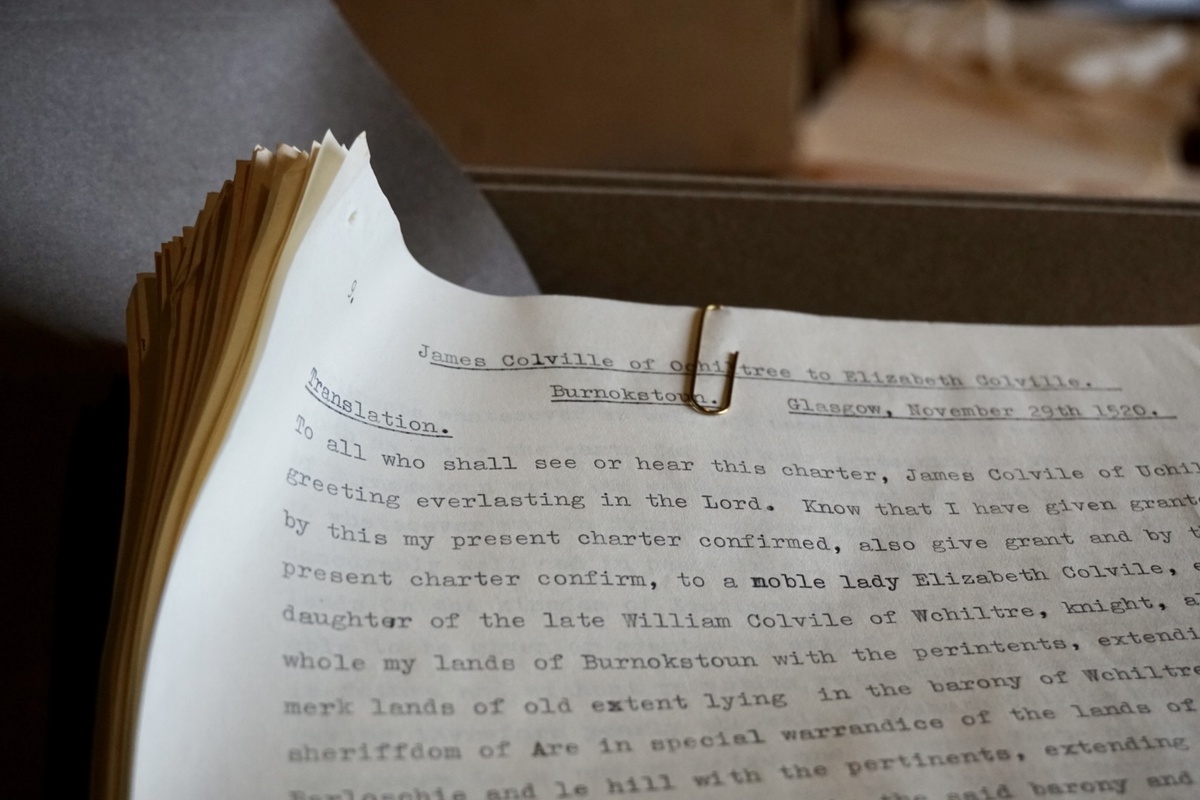 James Colville of Ochiltree to Elizabeth Colville.
Burnokstoun. Glasgow, November 29th 1520.
Translation.
To all who shall see or hear this charter, James Colvile of
greeting everlasting in the Lord. Know that I have given
by this my present charter confirmed, also give grant and by
present charter confirm, to a noble lady Elizabeth Colvile,
daughter of the late William Colvile of Wchiltre, knight,
whole my lands of Burnokstoun with the perintents,
merk lands of old extent lying in the barony of Wchiltre
sheriffdom of Are in special warrandice of the lands of
and le hill with the pertinents, extending
the said barony and